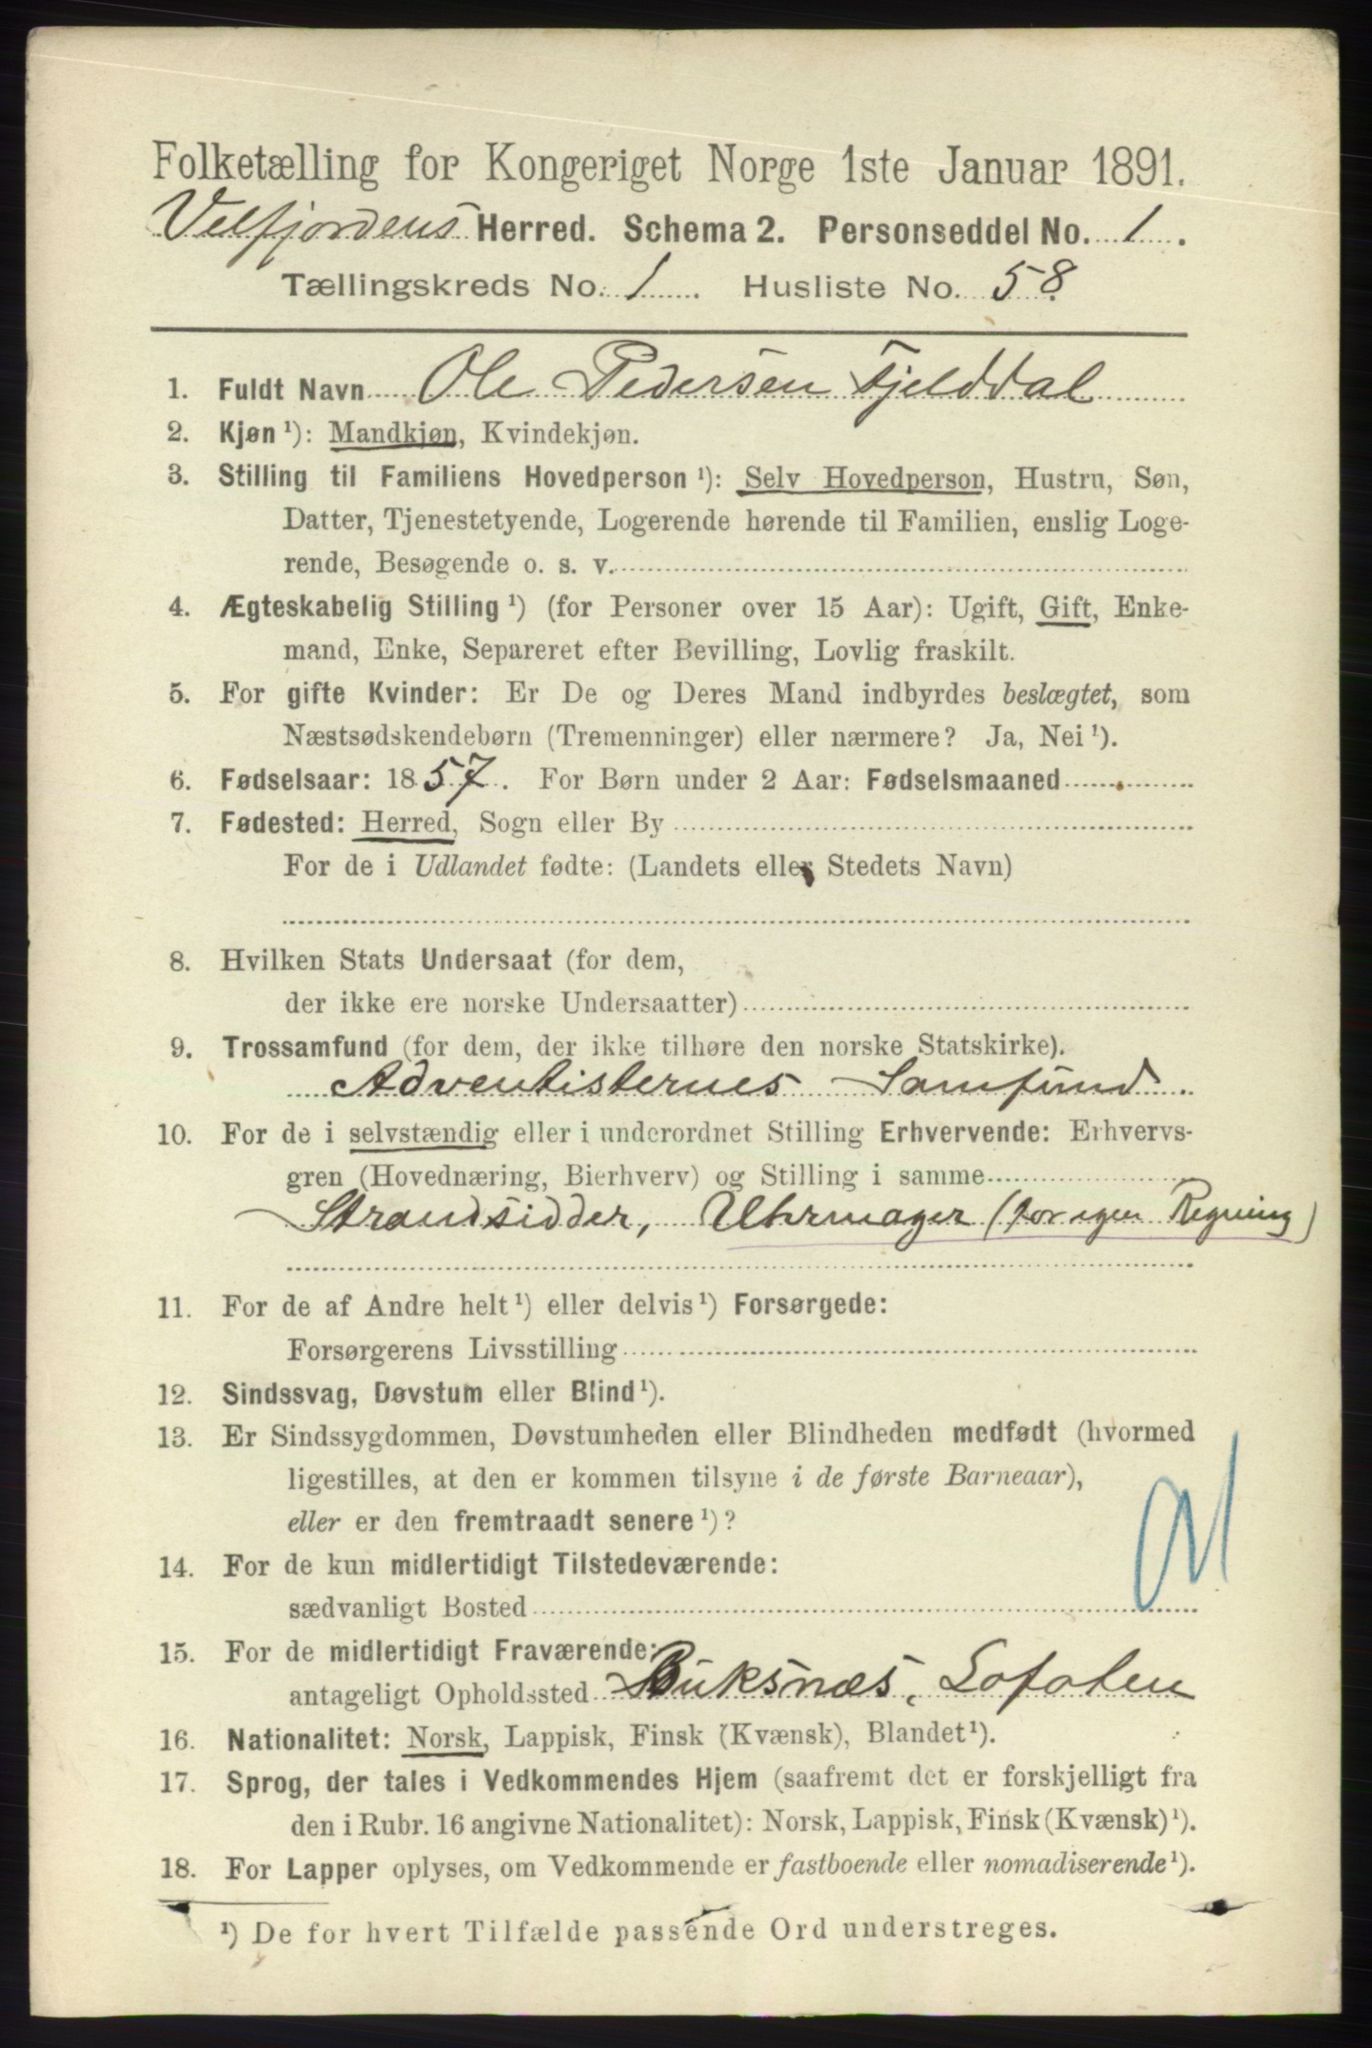 Folketælling for Kongeriget Norge 1ste Januar 1891.
Velfjordens Herred. Schema 2. Personseddel No. 1.
Tællingskreds No. 1. Husliste No. 58.
1. Fuldt Navn Ole Pedersen Fjelddal
2. Kjøn ¹): Mandkjøn, Kvindekjøn.
3. Stilling til Familiens Hovedperson ¹): Selv Hovedperson, Hustru, Søn,
Datter, Tjenestetyende, Logerende hørende til Familien, enslig Loge-
rende, Besøgende o. s. v.
4. Ægteskabelig Stilling ¹) (for Personer over 15 Aar): Ugift, Gift, Enke-
mand, Enke, Separeret efter Bevilling, Lovlig fraskilt.
5. For gifte Kvinder: Er De og Deres Mand indbyrdes beslægtet, som
Næstsødskendebørn (Tremenninger) eller nærmere? Ja, Nei ¹).
6. Fødselsaar: 1857. For Børn under 2 Aar: Fødselsmaaned
7. Fødested: Herred, Sogn eller By
For de i Udlandet fødte: (Landets eller Stedets Navn)
8. Hvilken Stats Undersaat (for dem,
der ikke ere norske Undersaatter)
9. Trossamfund (for dem, der ikke tilhøre den norske Statskirke).
Adventisternes Samfund
10. For de i selvstændig eller i underordnet Stilling Erhvervende: Erhvervs-
gren (Hovednæring, Bierhverv) og Stilling i samme
Strandsidder, Uhrmager (for egen Regning)
11. For de af Andre helt ¹) eller delvis ¹) Forsørgede:
Forsørgerens Livsstilling
12. Sindssvag, Døvstum eller Blind ¹).
13. Er Sindssygdommen, Døvstumheden eller Blindheden medfødt (hvormed
ligestilles, at den er kommen tilsyne i de første Barneaar),
eller er den fremtraadt senere ¹)?
14. For de kun midlertidigt Tilstedeværende:
sædvanligt Bosted
15. For de midlertidigt Fraværende:
antageligt Opholdssted Buksnæs, Lofoten
16. Nationalitet: Norsk, Lappisk, Finsk (Kvænsk), Blandet ¹).
17. Sprog, der tales i Vedkommendes Hjem (saafremt det er forskjelligt fra
den i Rubr. 16 angivne Nationalitet): Norsk, Lappisk, Finsk (Kvænsk) ¹).
18. For Lapper oplyses, om Vedkommende er fastboende eller nomadiserende ¹).
¹) De for hvert Tilfælde passende Ord understreges.